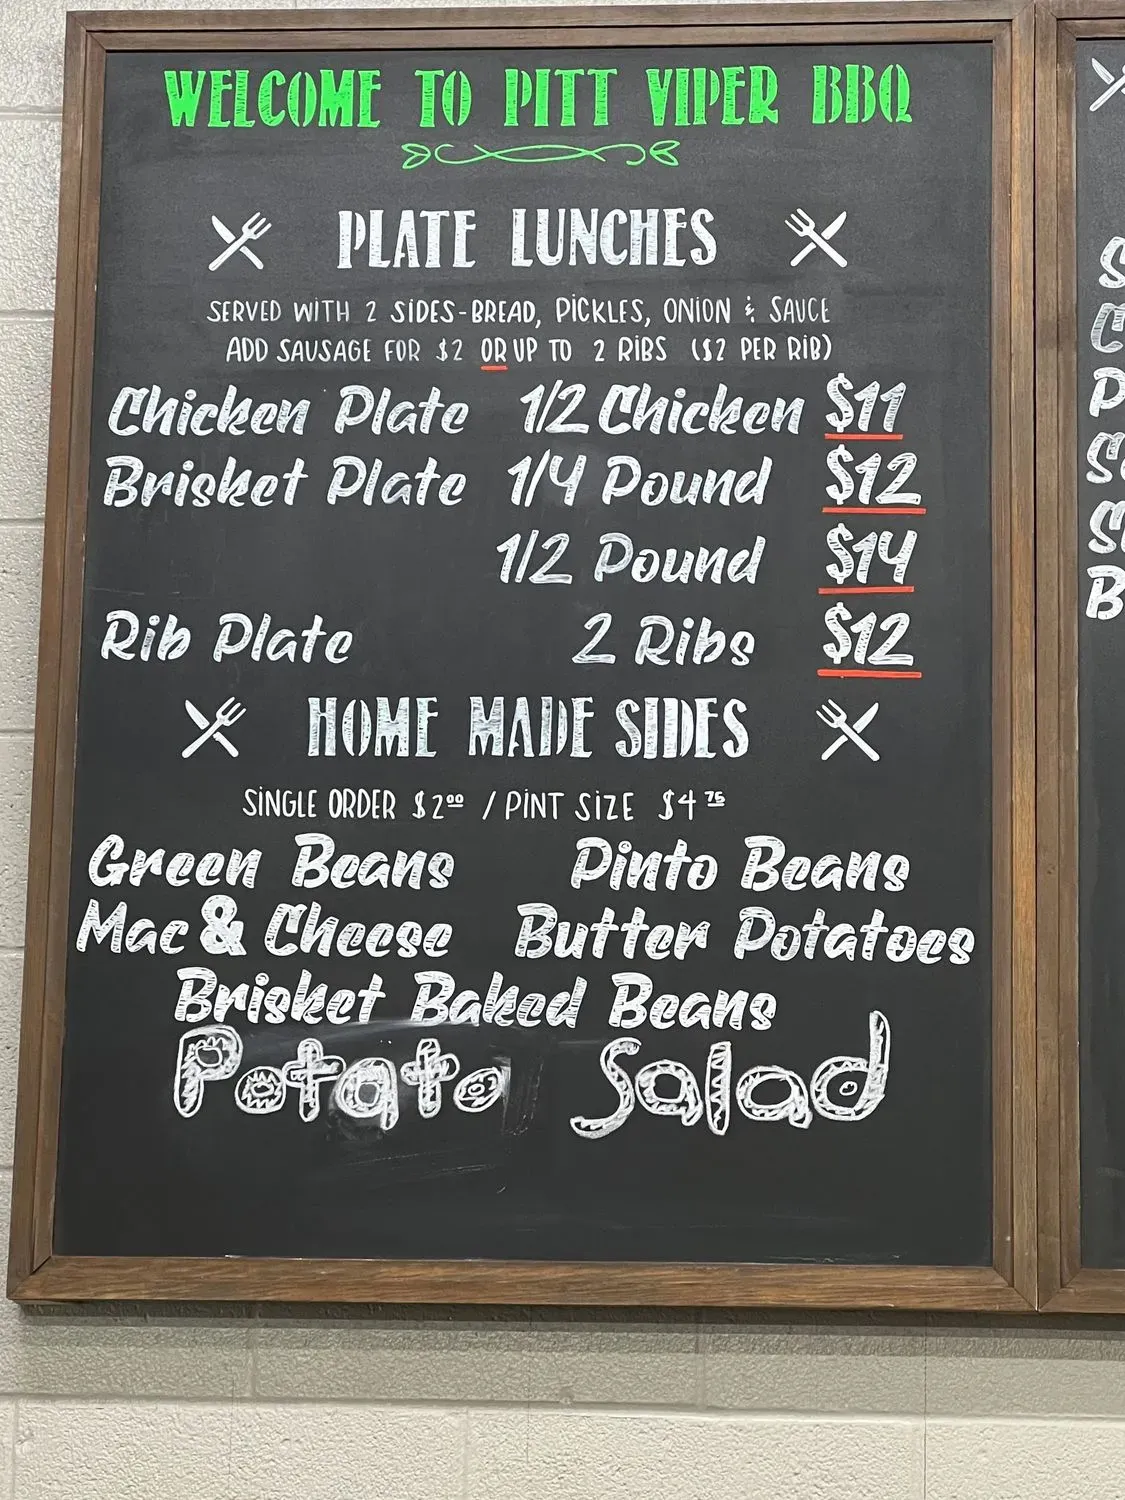 WELCOME TO PITT VIPER BBQ
PLATE LUNCHES
SERVED WITH 2 SIDES-BREAD, PICKLES, ONION & SAUCE
ADD SAUSAGE FOR $2 OR UP TO 2 RIBS ($2 PER RIB)
Chicken Plate 1/2 Chicken $11
Brisket Plate 1/4 Pound $12
1/2 Pound $14
Rib Plate 2 Ribs $12
HOME MADE SIDES
SINGLE ORDER $2.00 / PINT SIZE $4.75
Green Beans Pinto Beans
Mac & Cheese Butter Potatoes
Brisket Baked Beans
Potato Salad